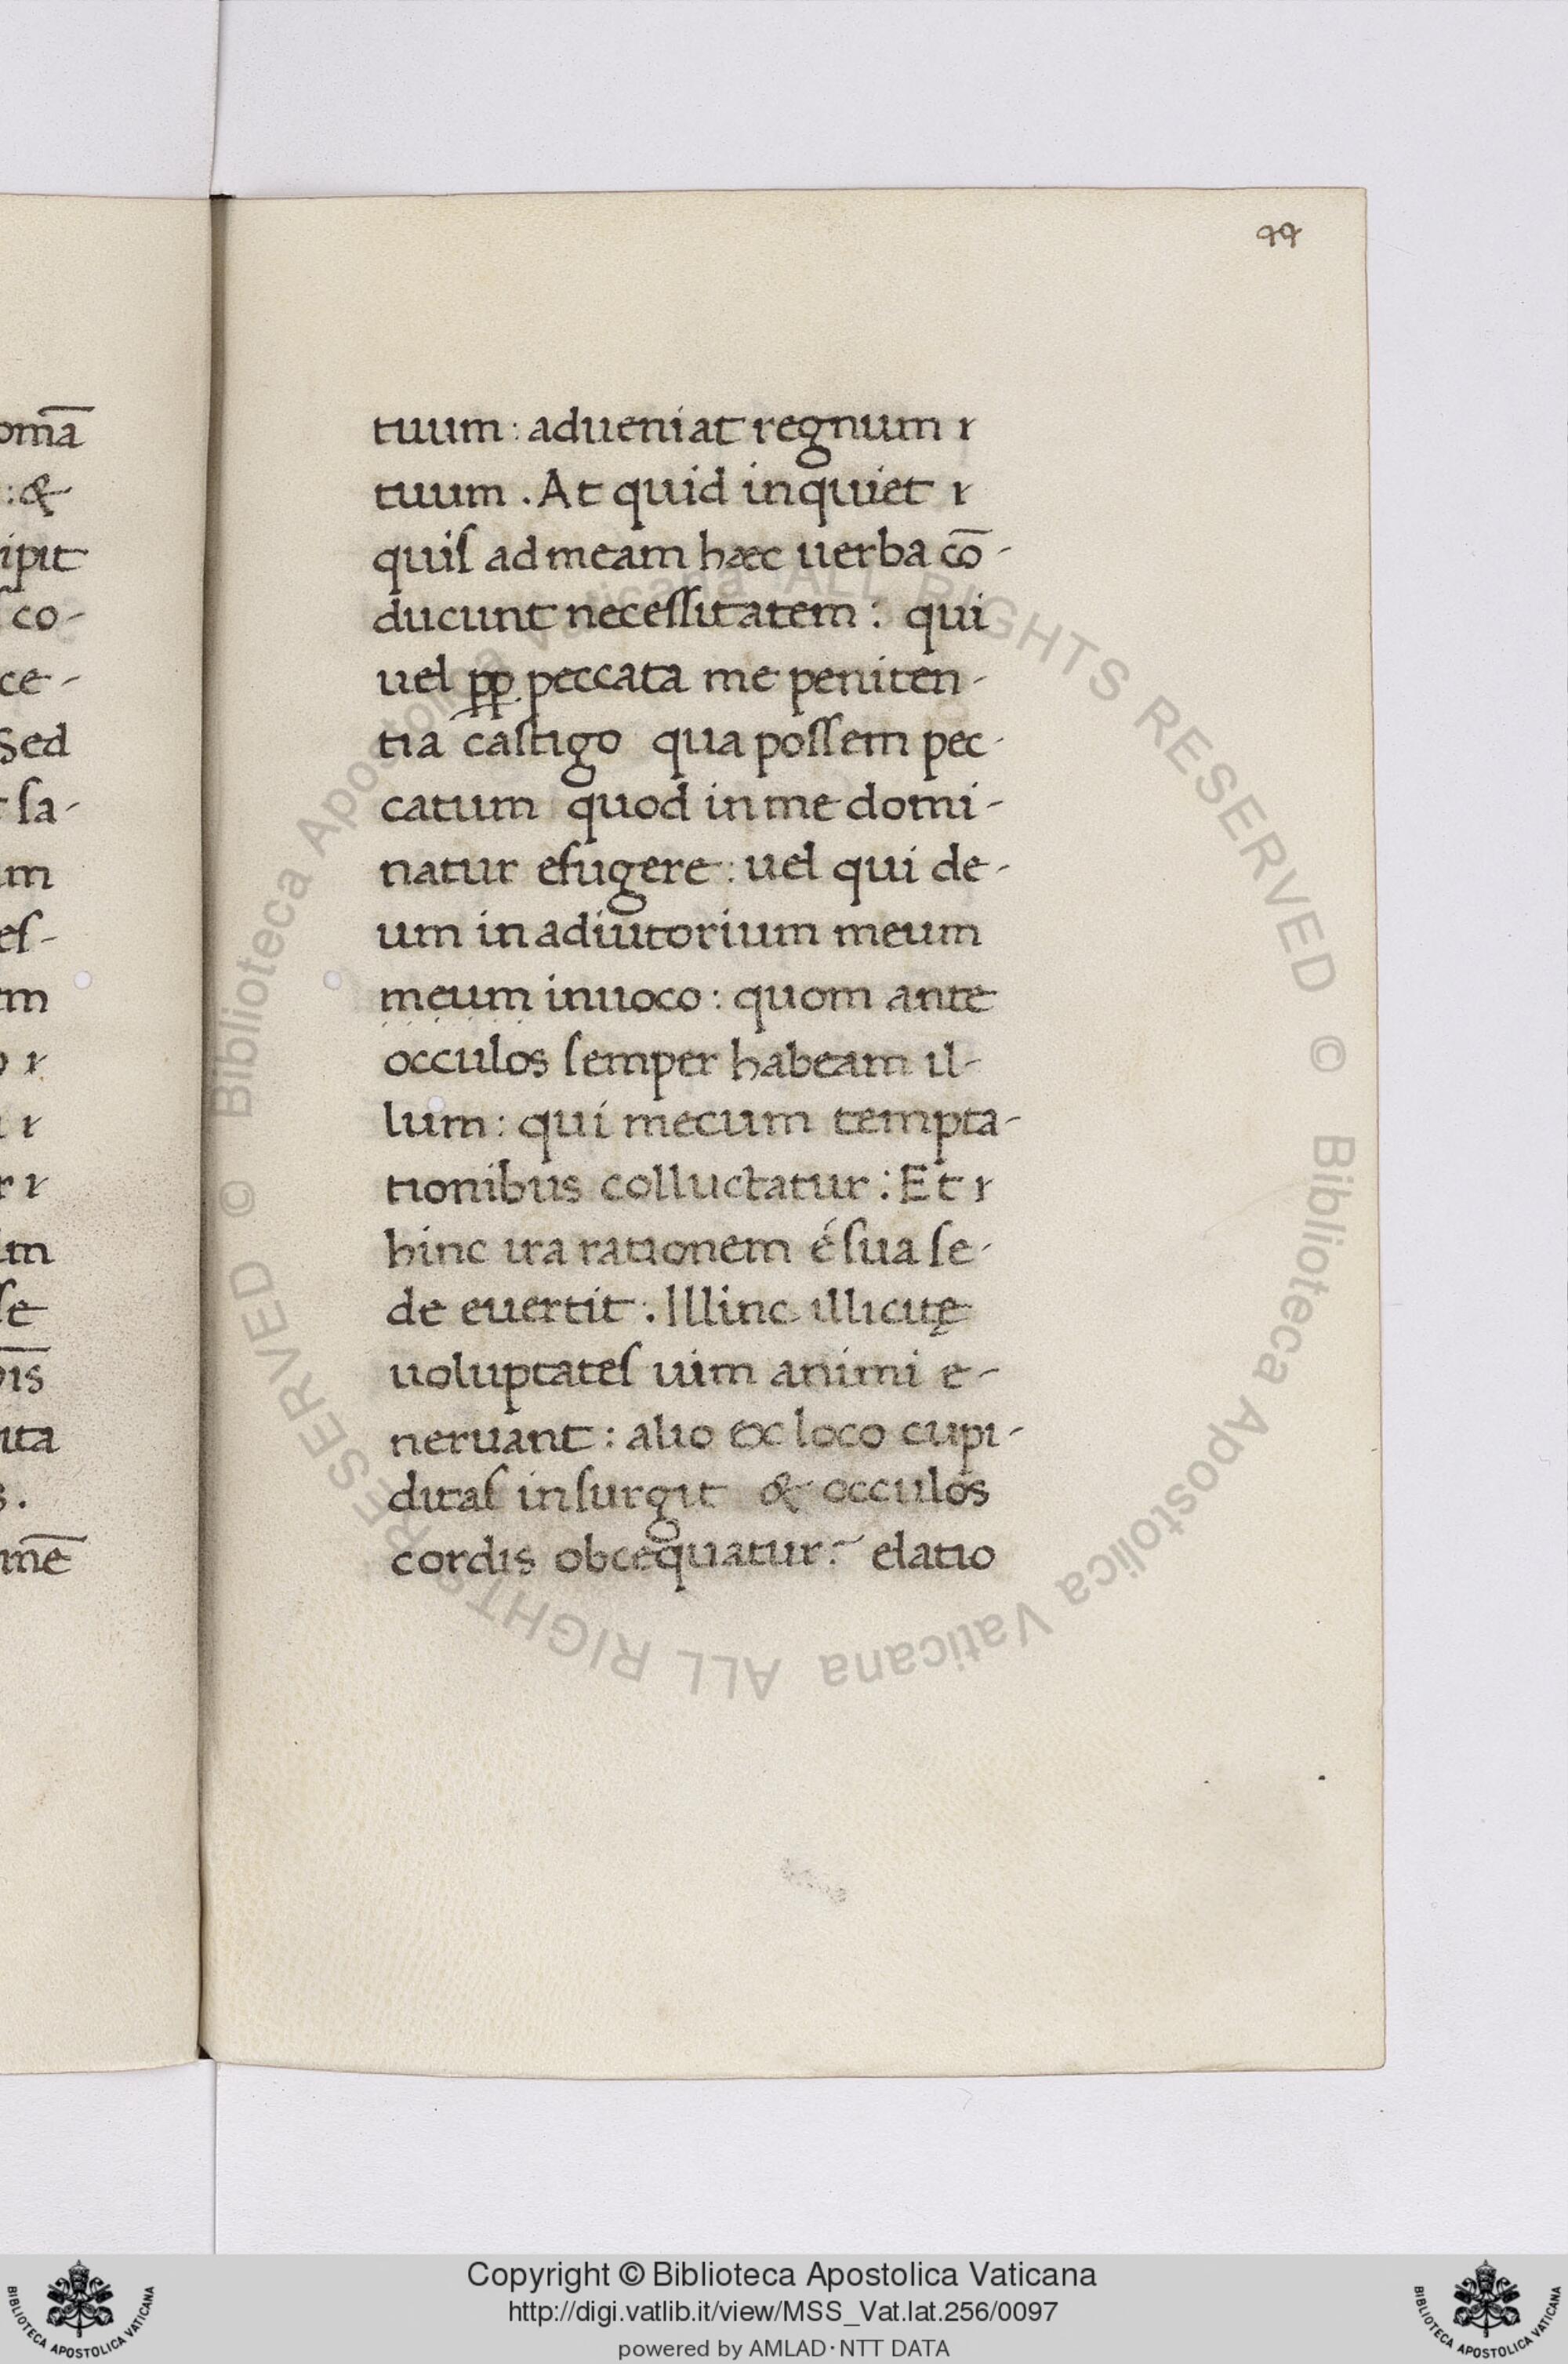 99
omā
tuum: adueniat regnum r
:&
tuum. At quid inquiet r
ipit
quiſ ad meam hæc uerba cō-
co-
ducunt neceſſitatem: qui
ce-
uel pp peccata me peniten-
Sed
tia caſtigo qua poſſem pec-
ſa-
catum quod in me domi-
um
natur efugere: uel qui de-
eſ-
um in adiutorium meum
em
meum inuoco: quom ante
r
occulos ſemper habeam il-
r
lum: qui mecum tempta-
r r
tionibus colluctatur: Et r
um
hinc ira rationem é ſua ſe-
ſe
de euertit. Illinc illicitę
uoluptateſ uim animi e-
ita
neruant: alio ex loco cupi-
ditaſ inſurgit & occulos
mē
cordis obcequatur: elatio
© Biblioteca Apostolica Vaticana ALL RIGHTS RESERVED © Biblioteca Apostolica Vaticana ALL RIGHTS RESERVED
Copyright © Biblioteca Apostolica Vaticana
http://digi.vatlib.it/view/MSS_Vat.lat.256/0097
powered by AMLAD·NTT DATA
BIBLIOTECA APOSTOLICA VATICANA
BIBLIOTECA APOSTOLICA VATICANA